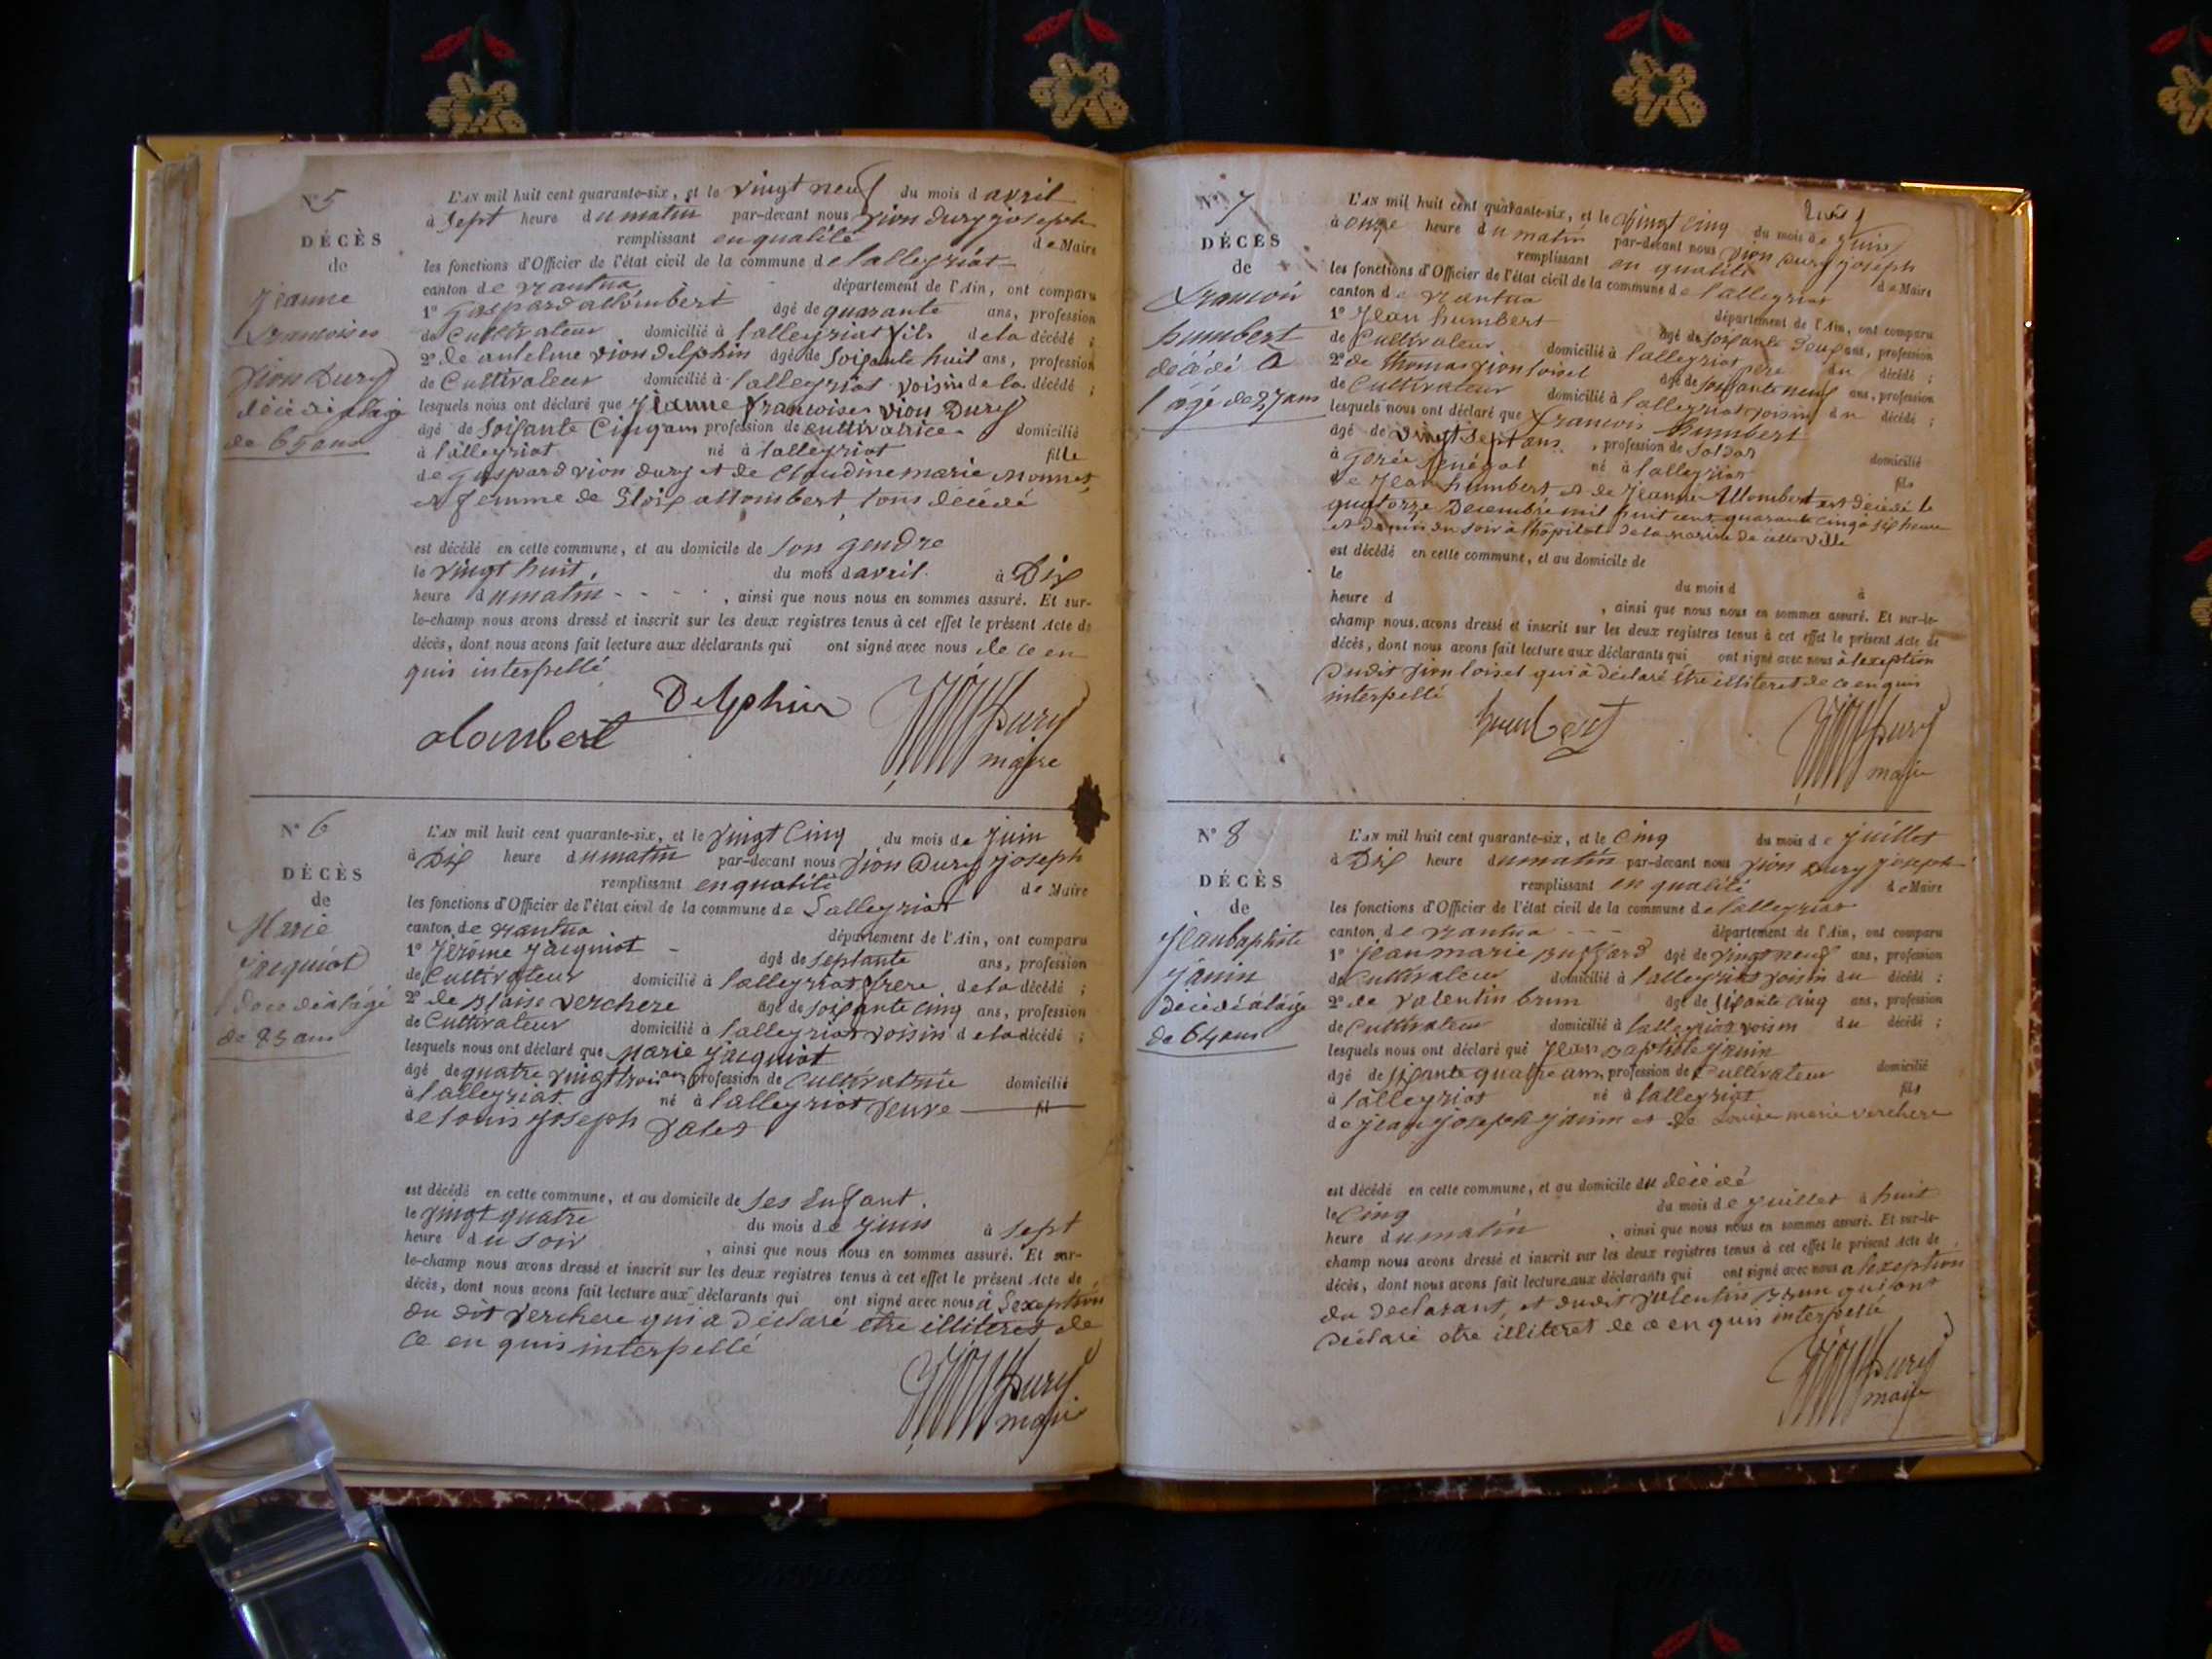 N° 5
DÉCÈS
de
Jeanne
françoise
Vion Dury
décédé a l'age
de 65 ans
L'AN mil huit cent quarante-six, et le vingt neuf du mois d avril
à Sept heure du matin par-devant nous Vion Dury joseph
remplissant en qualité de Maire
les fonctions d'Officier de l'état civil de la commune de lalleyriat
canton de nantua département de l'Ain, ont comparu
1° Gaspard allombert âgé de quarante ans, profession
de Cultivateur domicilié à lalleyriat fils de la décédé ;
2° de antelme vion delphin âgé de Soixante huit ans, profession
de Cultivateur domicilié à lalleyriat voisin de la décédé ;
lesquels nous ont déclaré que Jeanne françoise vion Dury
âgé de Soixante Cinq ans profession de cultivatrice domicilié
à lalleyriat né à lalleyriat fille
de gaspard vion dury et de Claudine marie monnet
et femme de Eloix allombert, tous décédé
est décédé en cette commune, et au domicile de son gendre
le vingt huit du mois d avril à Dix
heure du matin , ainsi que nous nous en sommes assuré. Et sur-
le-champ nous avons dressé et inscrit sur les deux registres tenus à cet effet le présent Acte de
décès, dont nous avons fait lecture aux déclarants qui ont signé avec nous de ce en
quis interpellé
alombert Delphin Dury
maire
N° 6
DÉCÈS
de
Marie
Jacquiot
décédé a l'agé
de 83 ans
L'AN mil huit cent quarante-six, et le vingt Cinq du mois de juin
à Dix heure du matin par-devant nous Vion Dury joseph
remplissant en qualité de Maire
les fonctions d'Officier de l'état civil de la commune de Lalleyriat
canton de nantua département de l'Ain, ont comparu
1° Jérôme Jacquiot âgé de septante ans, profession
de Cultivateur domicilié à lalleyriat frere de la décédé ;
2° de Blaise verchere âgé de soixante cinq ans, profession
de Cultivateur domicilié à lalleyriat voisin de la décédé ;
lesquels nous ont déclaré que Marie Jacquiot
âgé de quatre vingt trois ans profession de Cultivatrice domicilié
à lalleyriat né à lalleyriat veuve fil
de louis joseph
est décédé en cette commune, et au domicile de ses Enfant.
le vingt quatre du mois de juin à sept
heure du soir , ainsi que nous nous en sommes assuré. Et sur-
le-champ nous avons dressé et inscrit sur les deux registres tenus à cet effet le présent Acte de
décès, dont nous avons fait lecture aux déclarants qui ont signé avec nous à Lexeption
du dit Verchere qui a déclaré etre illiteret de
ce en quis interpellé
Dury
maire
N° 7
DÉCÈS
de
francois
humbert
décédé a
l'agé de 27 ans
L'AN mil huit cent quarante-six, et le vingt cinq du mois de juin
à onze heure du matin par-devant nous Vion Dury joseph
remplissant en qualité de Maire
les fonctions d'Officier de l'état civil de la commune de lalleyriat
canton de nantua département de l'Ain, ont comparu
1° Jean humbert âgé de soixante deux ans, profession
de Cultivateur domicilié à lalleyriat père du décédé ;
2° de thomas vion loisel âgé de soixante neuf ans, profession
de Cultivateur domicilié à lalleyriat voisin du décédé ;
lesquels nous ont déclaré que francois humbert
âgé de vingt sept ans , profession de soldat domicilié
à gorée Sénégal né à lalleyriat fils
de Jean humbert et de Jeanne Allombert est décédé le
quatorze Decembre mil huit cent quarante cinq à six heure
et demin du soir à lhôpital de la marine de cette ville
est décédé en cette commune, et au domicile de
le du mois d à
heure d , ainsi que nous nous en sommes assuré. Et sur-le-
champ nous avons dressé et inscrit sur les deux registres tenus à cet effet le présent Acte de
décès, dont nous avons fait lecture aux déclarants qui ont signé avec nous à lexeption
dudit Vion loisel qui à déclaré être illiteret de ce en quis
interpellé
humbert Dury
maire
N° 8
DÉCÈS
de
Jean baptiste
janin
décédé a l'age
de 64 ans
L'AN mil huit cent quarante-six, et le Cinq du mois de juillet
à Dix heure du matin par-devant nous Vion Dury joseph
remplissant en qualité de Maire
les fonctions d'Officier de l'état civil de la commune de lalleyriat
canton de nantua département de l'Ain, ont comparu
1° Jean marie âgé de vingt neuf ans, profession
de Cultivateur domicilié à lalleyriat voisin du décédé ;
2° de valentin brun âgé de sixante cinq ans, profession
de Cultivateur domicilié à lalleyriat voisin du décédé ;
lesquels nous ont déclaré que Jean Baptiste janin
âgé de sixante quatre ans profession de Cultivateur domicilié
à lalleyriat né à lalleyriat fils
de jean joseph janin et de Louise marie verchere
est décédé en cette commune, et au domicile du décédé
le Cinq du mois de juillet à huit
heure du matin , ainsi que nous nous en sommes assuré. Et sur-le-
champ nous avons dressé et inscrit sur les deux registres tenus à cet effet le présent Acte de
décès, dont nous avons fait lecture aux déclarants qui ont signé avec nous a lexeption
du déclarant, et dudit valentin Brun qui ont
déclaré etre illiteret de ce en quis interpellé
Dury
maire